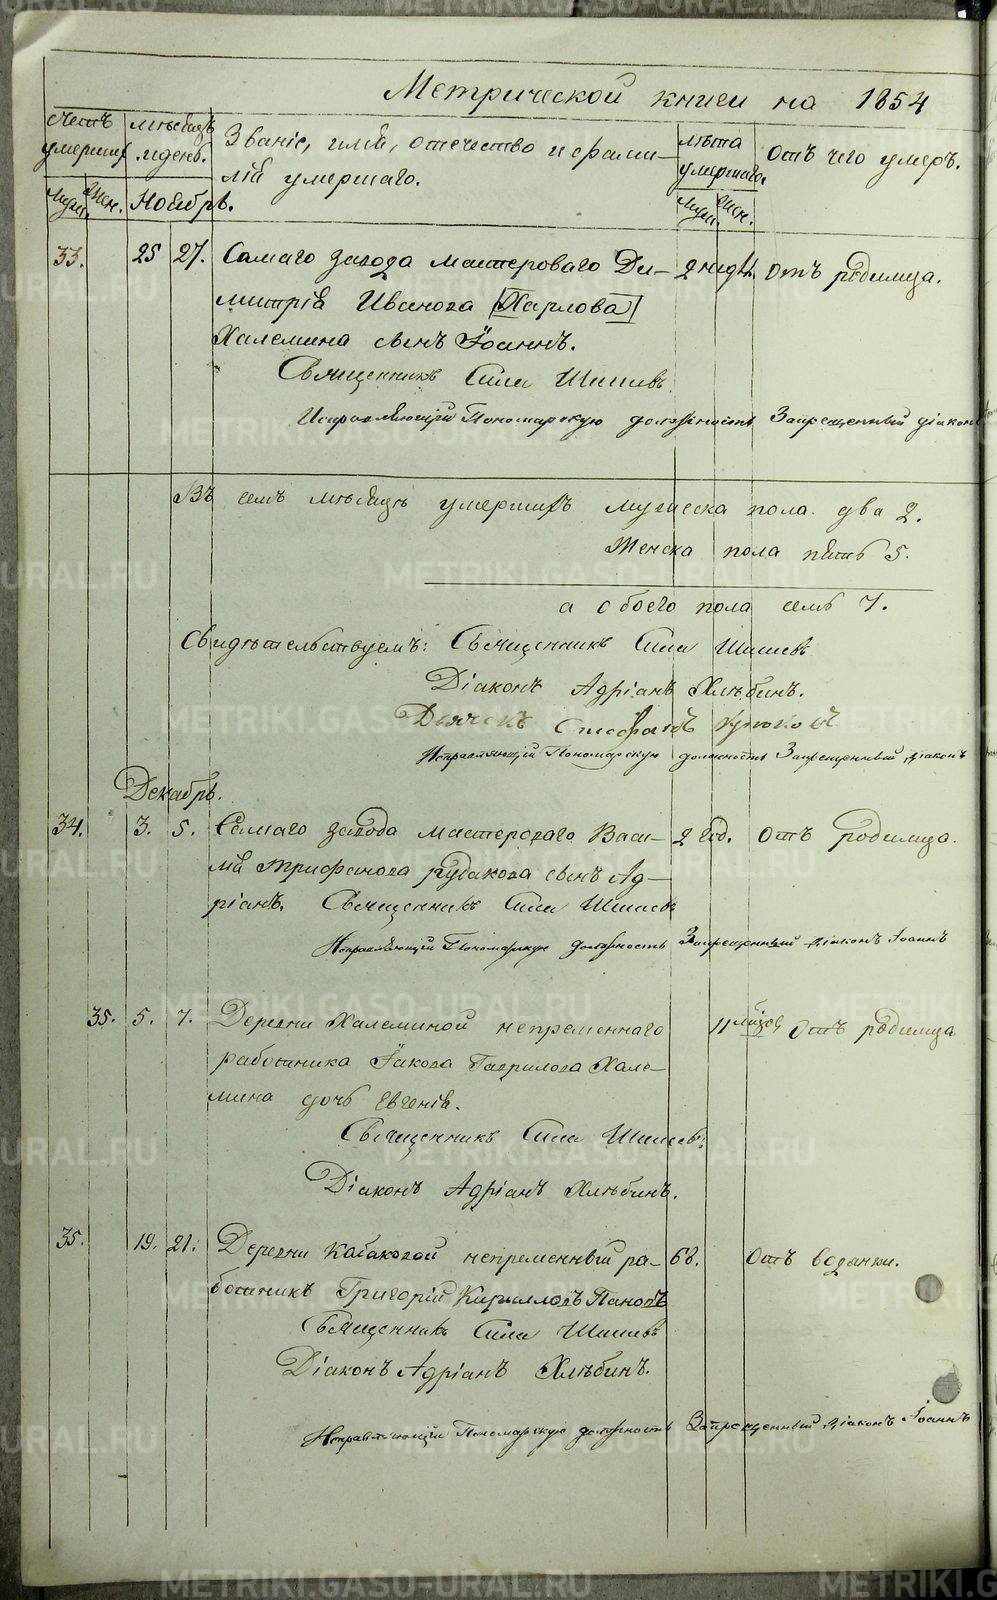 Метрической книги на 1854
Счетъ умершихъ
Мѣсяцъ и день.
Званіе, имя, отечество и фами-
лія умершаго.
Лѣта умершаго.
Отъ чего умеръ.
Муж. Жен. Ноябрь. Муж. Жен.
33. 25 27. Самаго завода мастероваго Ди- 2 недѣл. отъ родимца.
митрія Иванова [Харлова]
Халемина сынъ Іоаннъ.
Священникъ Сила Шишевъ
Исправляющій Пономарскую должность Запрещенный діаконъ
Въ семъ мѣсяцѣ умершихъ мужеска пола два 2.
Женска пола пять 5.
а обоего пола семь 7.
Свидѣтельствуемъ: Священникъ Сила Шишевъ
Діаконъ Адріанъ Хлѣбинъ.
Дьячекъ Стефанъ
Исправляющій Пономарскую должность Запрещенный діаконъ
Декабрь.
34. 3. 5. Самаго завода мастероваго Васи- 2 год. Отъ родимца.
лія Трифонова Рудакова сынъ Ад-
ріанъ. Священникъ Сила Шишевъ
Исправляющій Пономарскую должность Запрещенный діаконъ Іоаннъ
35. 5. 7. Деревни Халеминой непременнаго 11 Отъ родимца
работника Іакова Гаврилова Хале-
мина дочь Евгенія.
Священникъ Сила Шишевъ
Діаконъ Адріанъ Хлѣбинъ.
35. 19. 21. Деревни Кабаковой непременный ра- 68. Отъ водянки.
ботникъ Григорій Кирилловъ Пановъ
Священникъ Сила Шишевъ
Діаконъ Адріанъ Хлѣбинъ.
Исправляющій Пономарскую должность Запрещенный діаконъ Іоаннъ
METRIKI.GASO-URAL.RU